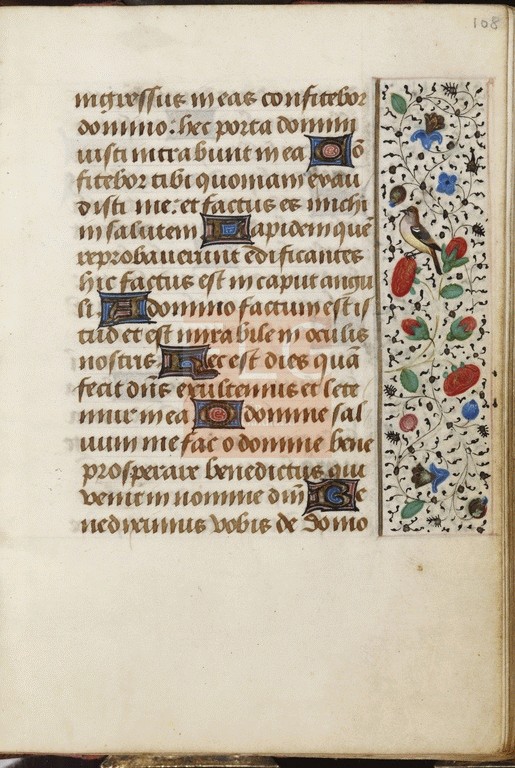 108
ingressus in eas confitebor
domino : hec porta domini
iusti intrabunt in ea Cō
fitebor tibi quoniam exau
disti me : et factus es michi
in salutem Lapidem quē
reprobaverunt edificantes
hic factus est in caput angu
li A domino factum est is
tud et est mirabile in oculis
nostris Hec est dies quā
fecit dn̄s exultemus et lete
mur in ea O domine sal
uum me fac o domine bene
prosperare benedictus qui
venit in nomine dn̄i Be
nediximus vobis de domo